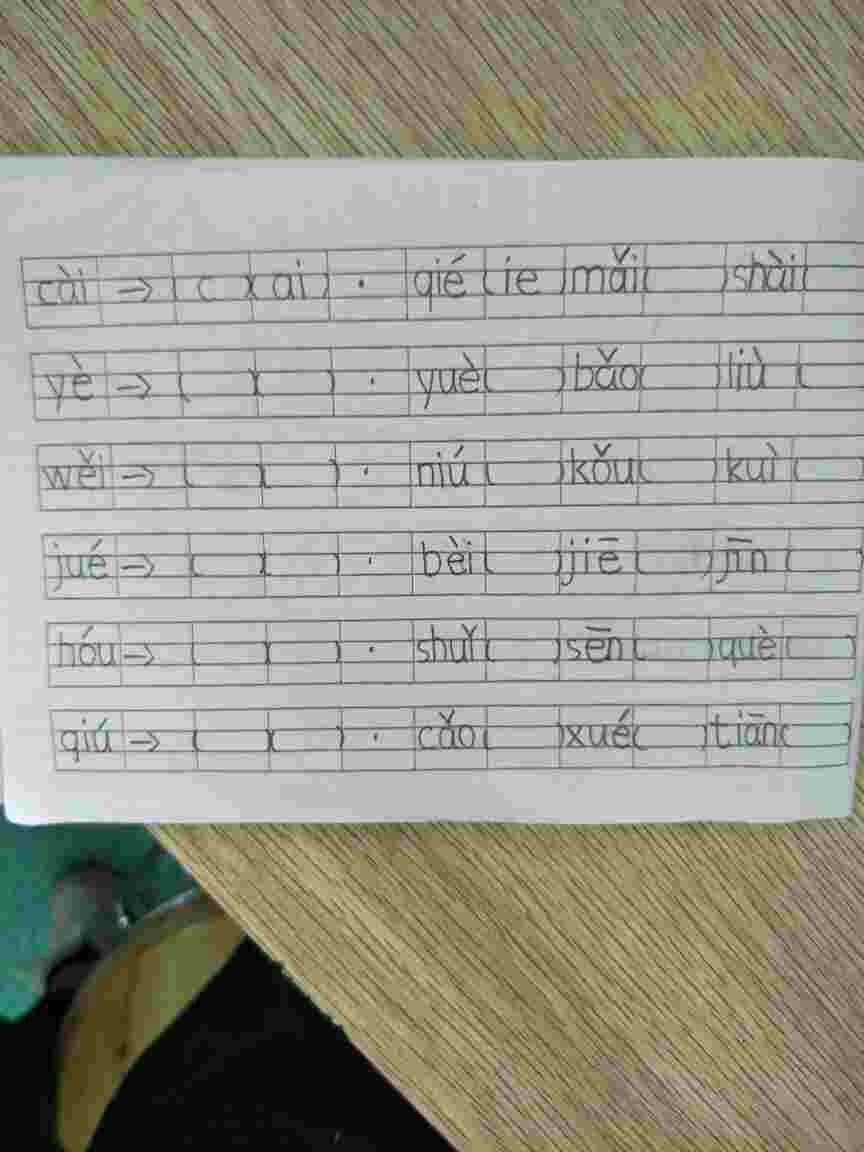 cài → (c)(ai) · qié(ie) mǎi( ) shài(
yè → ( )( ) · yuè( ) bǎo( ) liù (
wěi → ( )( ) · niú( ) kǒu( ) kuì(
jué → ( )( ) · bèi( ) jiē( ) jīn (
hóu → ( )( ) · shuǐ( ) sēn( ) què(
qiú → ( )( ) · cǎo( ) xué( ) tiān(